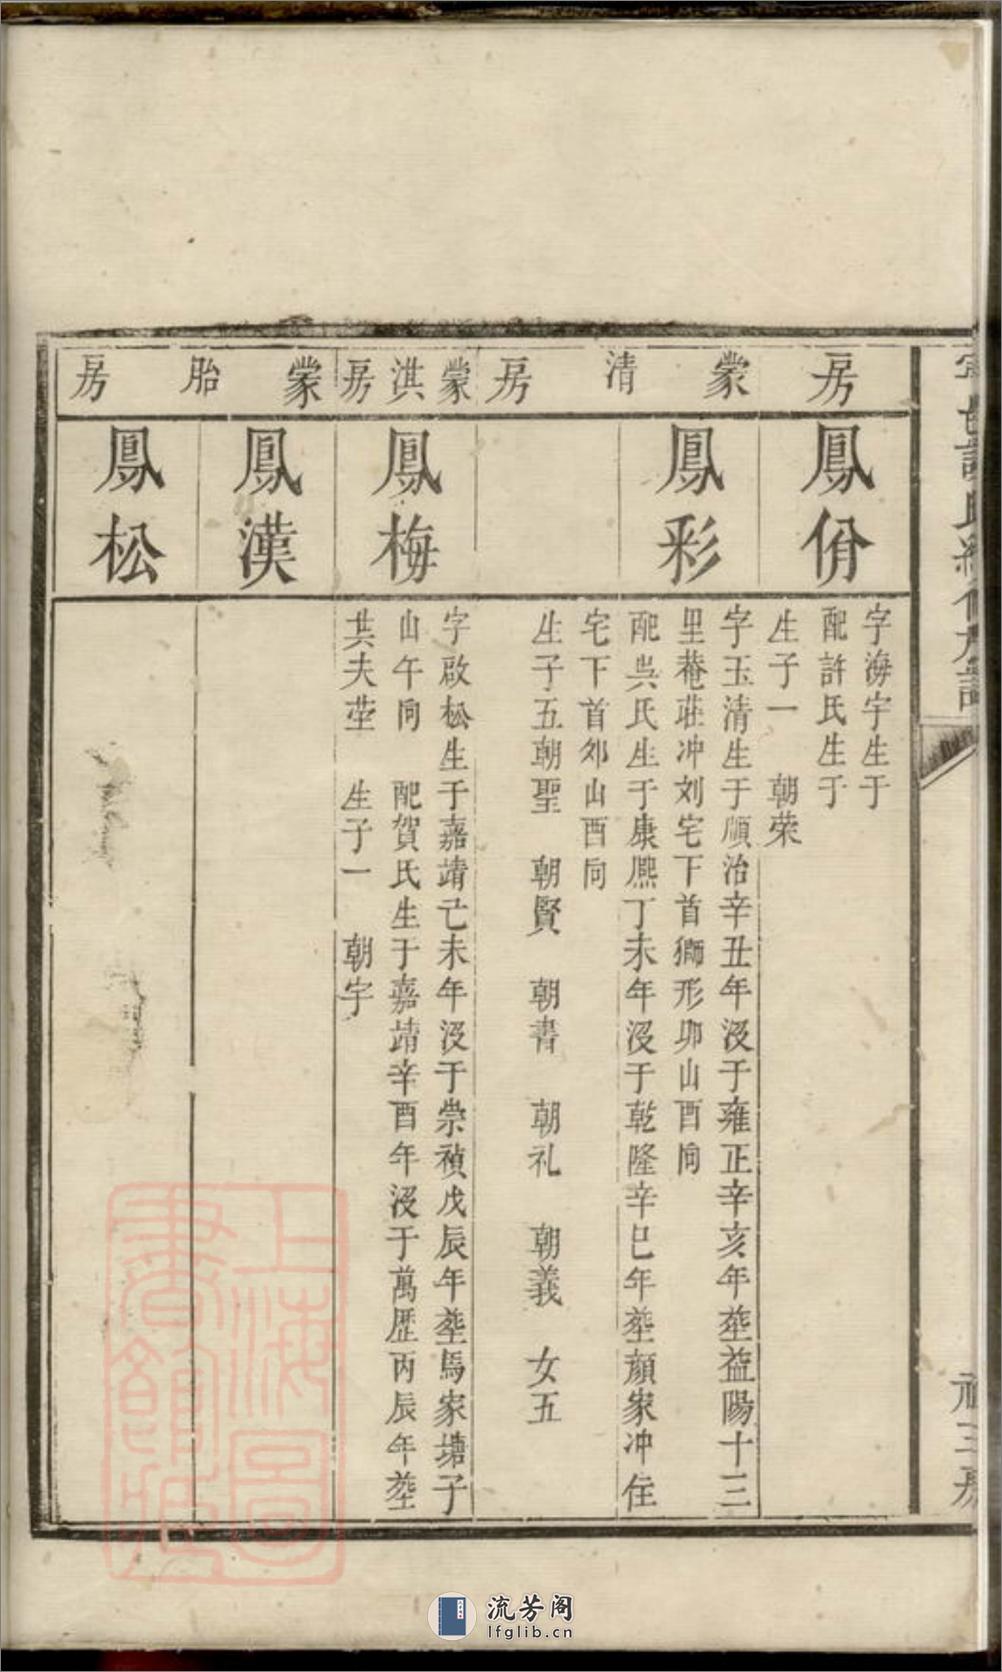 房
鳳佾
字海宇生于
配許氏生于
生子一 朝荣
蒙清房
鳳彩
字玉清生于順治辛丑年没于雍正辛亥年塟益陽十三
里菴莊冲刘宅下首獅形卯山酉向
配吳氏生于康熈丁未年没于乾隆辛巳年塟顔家冲住
宅下首卯山酉向
生子五朝聖 朝賢 朝書 朝礼 朝義 女五
蒙洪房
鳳梅
字啟松生于嘉靖己未年没于崇禎戊辰年塟馬家塘子
山午向 配賀氏生于嘉靖辛酉年没于萬歷丙辰年塟
共夫茔 生子一 朝宇
蒙胎房
鳳漢
鳳松
上海圖書館藏
流芳阁
lfglib.cn